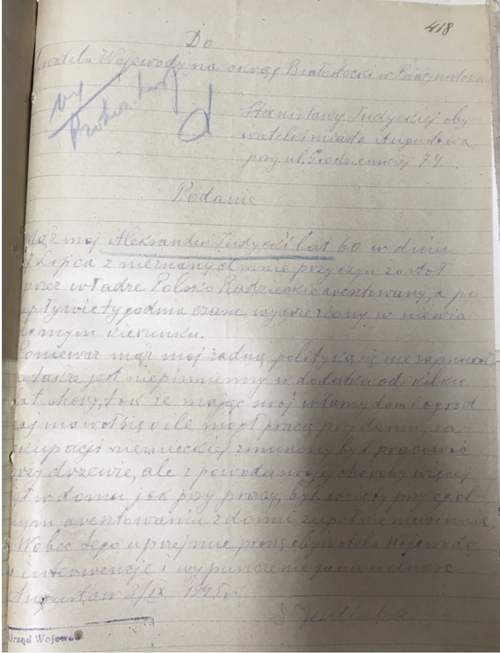 418
Do
Wojewody na okręg Białostocki w Białymstoku
Stanisławy Judyckiej oby
watelki miasta Augustowa
przy ul. 74
Podanie
Mąż mój Aleksander Judycki lat 60 w dniu
lipca z nieznanych mnie przyczyn został
przez władze Polsko Radzieckie aresztowany, a po
upływie tygodnia czasu wywieziony w niewia
domym kierunku.
Ponieważ mąż mój żadną polityką się nie zajmował
jest niepiśmienny w dodatku od kilku
lat chory, tak że mając swój własny dom i ogród
zajmował się o ile mógł pracą przy domu, za
okupacji niemieckiej zmuszony był pracować
przy drzewie, ale z powodu swojej choroby więcej
był w domu jak przy pracy, był wzięty przy
aresztowaniu z domu zupełnie niewinnie
Wobec tego uprzejmie proszę obywatela Wojewodę
o interwencję i wypuszczenie
Augustów 2/IX-1945 r.
S Judycka
Urząd Wojew